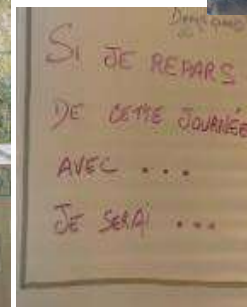 SI JE REPARS
DE CETTE JOURNÉE
AVEC ...
JE SERAI ...